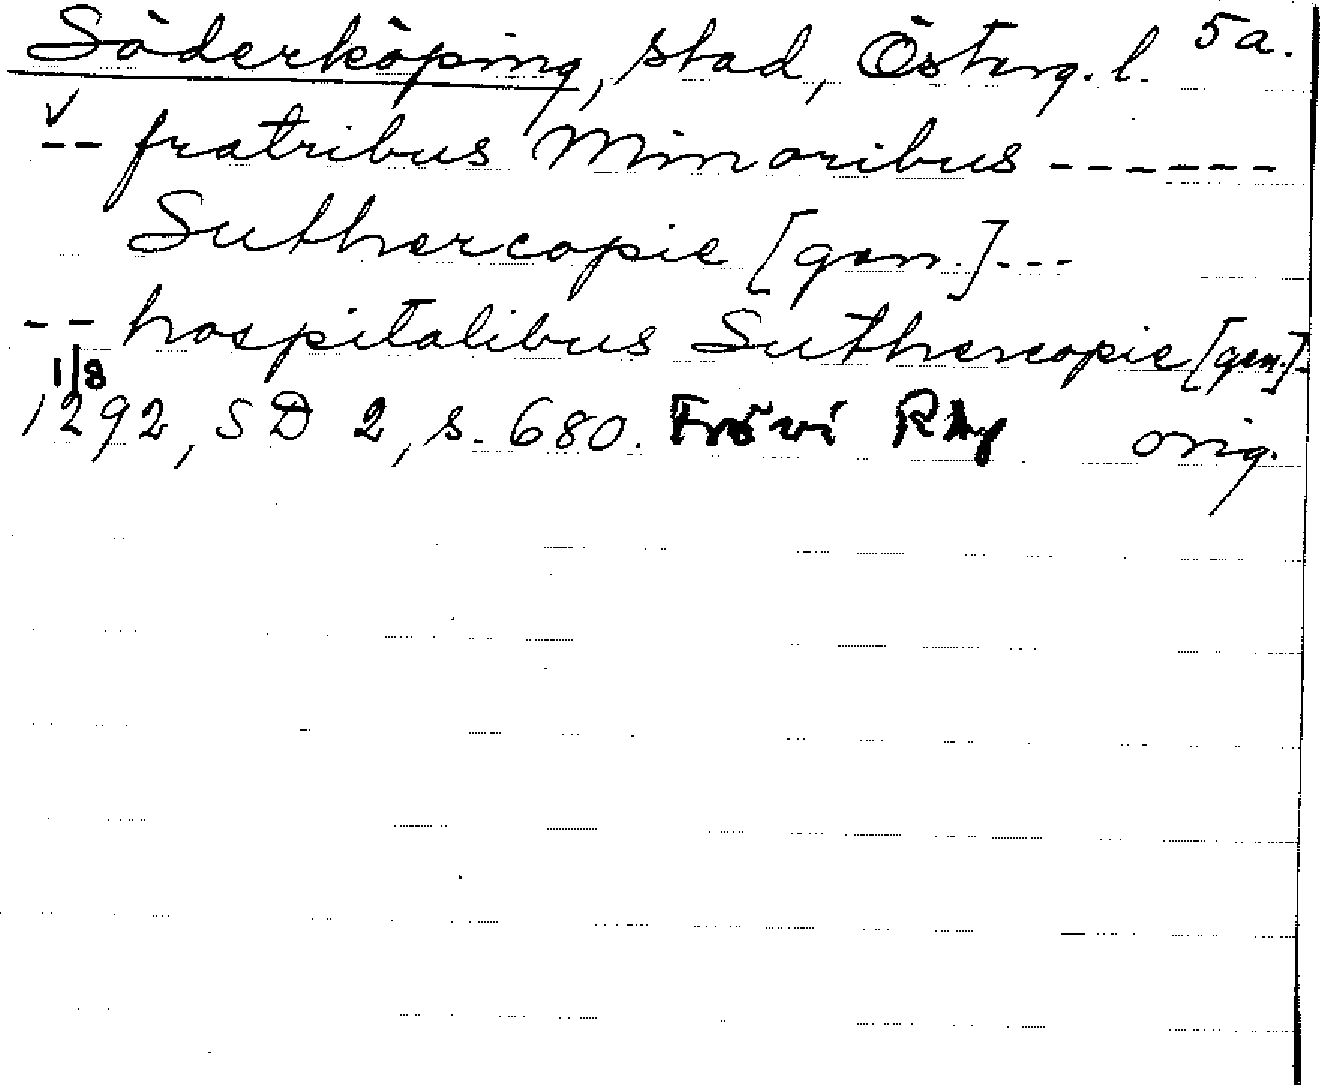 Söderköping, stad, Österg. l. 5a.
-- fratribus Minoribus ------
Suthercopie [gen.]---
-- hospitalibus Suthercopie [gen.]-
1/8
1292, SD 2, s. 680. Frövi orig.